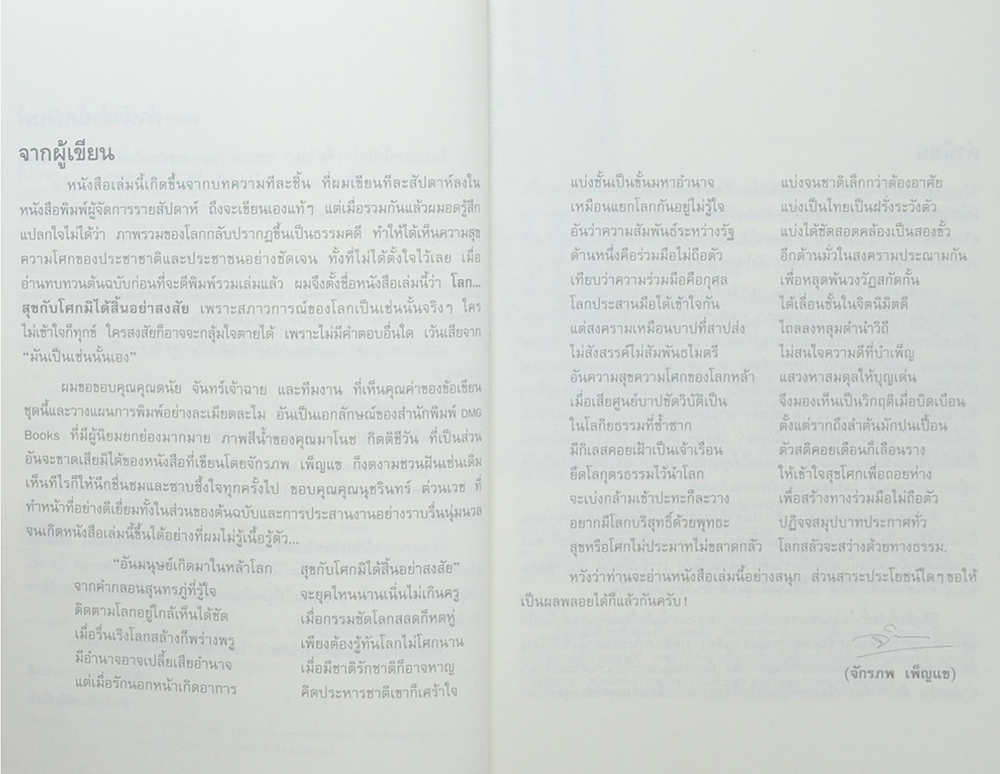 จากผู้เขียน
หนังสือเล่มนี้เกิดขึ้นจากบทความทีละชิ้น ที่ผมเขียนทีละสัปดาห์ลงใน
หนังสือพิมพ์ผู้จัดการรายสัปดาห์ ถึงจะเขียนเองแท้ๆ แต่เมื่อรวมกันแล้วผมอดรู้สึก
แปลกใจไม่ได้ว่า ภาพรวมของโลกกลับปรากฏขึ้นเป็นธรรมคดี ทำให้ได้เห็นความสุข
ความโศกของประชาชาติและประชาชนอย่างชัดเจน ทั้งที่ไม่ได้ตั้งใจไว้เลย เมื่อ
อ่านทบทวนต้นฉบับก่อนที่จะตีพิมพ์รวมเล่มแล้ว ผมจึงตั้งชื่อหนังสือเล่มนี้ว่า โลก...
สุขกับโศกมิได้สิ้นอย่าสงสัย เพราะสภาวการณ์ของโลกเป็นเช่นนั้นจริงๆ ใคร
ไม่เข้าใจก็ทุกข์ ใครสงสัยก็อาจจะกลุ้มใจตายได้ เพราะไม่มีคำตอบอื่นใด เว้นเสียจาก
“มันเป็นเช่นนั้นเอง”
ผมขอขอบคุณคุณดนัย จันทร์เจ้าฉาย และทีมงาน ที่เห็นคุณค่าของข้อเขียน
ชุดนี้และวางแผนการพิมพ์อย่างละเมียดละไม อันเป็นเอกลักษณ์ของสำนักพิมพ์ DMG
Books ที่มีผู้นิยมยกย่องมากมาย ภาพสีน้ำของคุณมาโนช กิตติชีวัน ที่เป็นส่วน
อันจะขาดเสียมิได้ของหนังสือที่เขียนโดยจักรภพ เพ็ญแข ก็งดงามชวนฝันเช่นเดิม
เห็นทีไรก็ให้นึกชื่นชมและซาบซึ้งใจทุกครั้งไป ขอบคุณคุณนุชรินทร์ ต่วนเวช ที่
ทำหน้าที่อย่างดีเยี่ยมทั้งในส่วนของต้นฉบับและการประสานงานอย่างราบรื่นนุ่มนวล
จนเกิดหนังสือเล่มนี้ขึ้นได้อย่างที่ผมไม่รู้เนื้อรู้ตัว...
“อันมนุษย์เกิดมาในหล้าโลก สุขกับโศกมิได้สิ้นอย่าสงสัย”
จากคำกลอนสุนทรภู่ที่รู้ใจ จะยุคไหนนานเนิ่นไม่เกินครู
ติดตามโลกอยู่ใกล้เห็นได้ชัด เมื่อกรรมซัดโลกสลดก็หดหู่
เมื่อรื่นเริงโลกสล้างก็พร่างพรู เพียงต้องรู้ทันโลกไม่โศกนาน
มีอำนาจอาจเปลี้ยเสียอำนาจ เมื่อมีชาติรักชาติก็อาจหาญ
แต่เมื่อรักนอกหน้าเกิดอาการ คิดประหารชาติเขาก็เศร้าใจ
แบ่งชั้นเป็นชั้นมหาอำนาจ แบ่งจนชาติเล็กกว่าต้องอาศัย
เหมือนแยกโลกกันอยู่ไม่รู้ใจ แบ่งเป็นไทยเป็นฝรั่งระวังตัว
อันว่าความสัมพันธ์ระหว่างรัฐ แบ่งได้ชัดสอดคล้องเป็นสองขั้ว
ด้านหนึ่งคือร่วมมือไม่ถือตัว อีกด้านมั่วในสงครามประณามกัน
เทียบว่าความร่วมมือคือกุศล เพื่อหลุดพ้นวงวัฏสกัดกั้น
โลกประสานมือได้เข้าใจกัน ได้เลื่อนชั้นในจิตนิมิตดี
แต่สงครามเหมือนบาปที่สาปส่ง ไถลลงหลุมดำนำวิถี
ไม่สังสรรค์ไม่สัมพันธไมตรี ไม่สนใจความดีที่บำเพ็ญ
อันความสุขความโศกของโลกหล้า แสวงหาสมดุลให้บุญเด่น
เมื่อเสียศูนย์บาปซัดวิบัติเป็น จึงมองเห็นเป็นวิกฤติเมื่อบิดเบือน
ในโลกิยธรรมที่ซ้ำซาก ตั้งแต่รากถึงลำต้นมักปนเปื้อน
มีกิเลสคอยเฝ้าเป็นเจ้าเรือน ตัวสติคอยเตือนก็เลือนราง
ยึดโลกุตรธรรมไว้นำโลก ให้เข้าใจสุขโศกเพื่อถอยห่าง
จะเบ่งกล้ามเข้าปะทะก็ละวาง เพื่อสร้างทางร่วมมือไม่ถือตัว
อยากมีโลกบริสุทธิ์ด้วยพุทธะ ปฏิจจสมุปบาทประกาศทั่ว
สุขหรือโศกไม่ประมาทไม่ขลาดกลัว โลกสลัวจะสว่างด้วยทางธรรม.
หวังว่าท่านจะอ่านหนังสือเล่มนี้อย่างสนุก ส่วนสาระประโยชน์ใดๆ ขอให้
เป็นผลพลอยได้ก็แล้วกันครับ!
(จักรภพ เพ็ญแข)